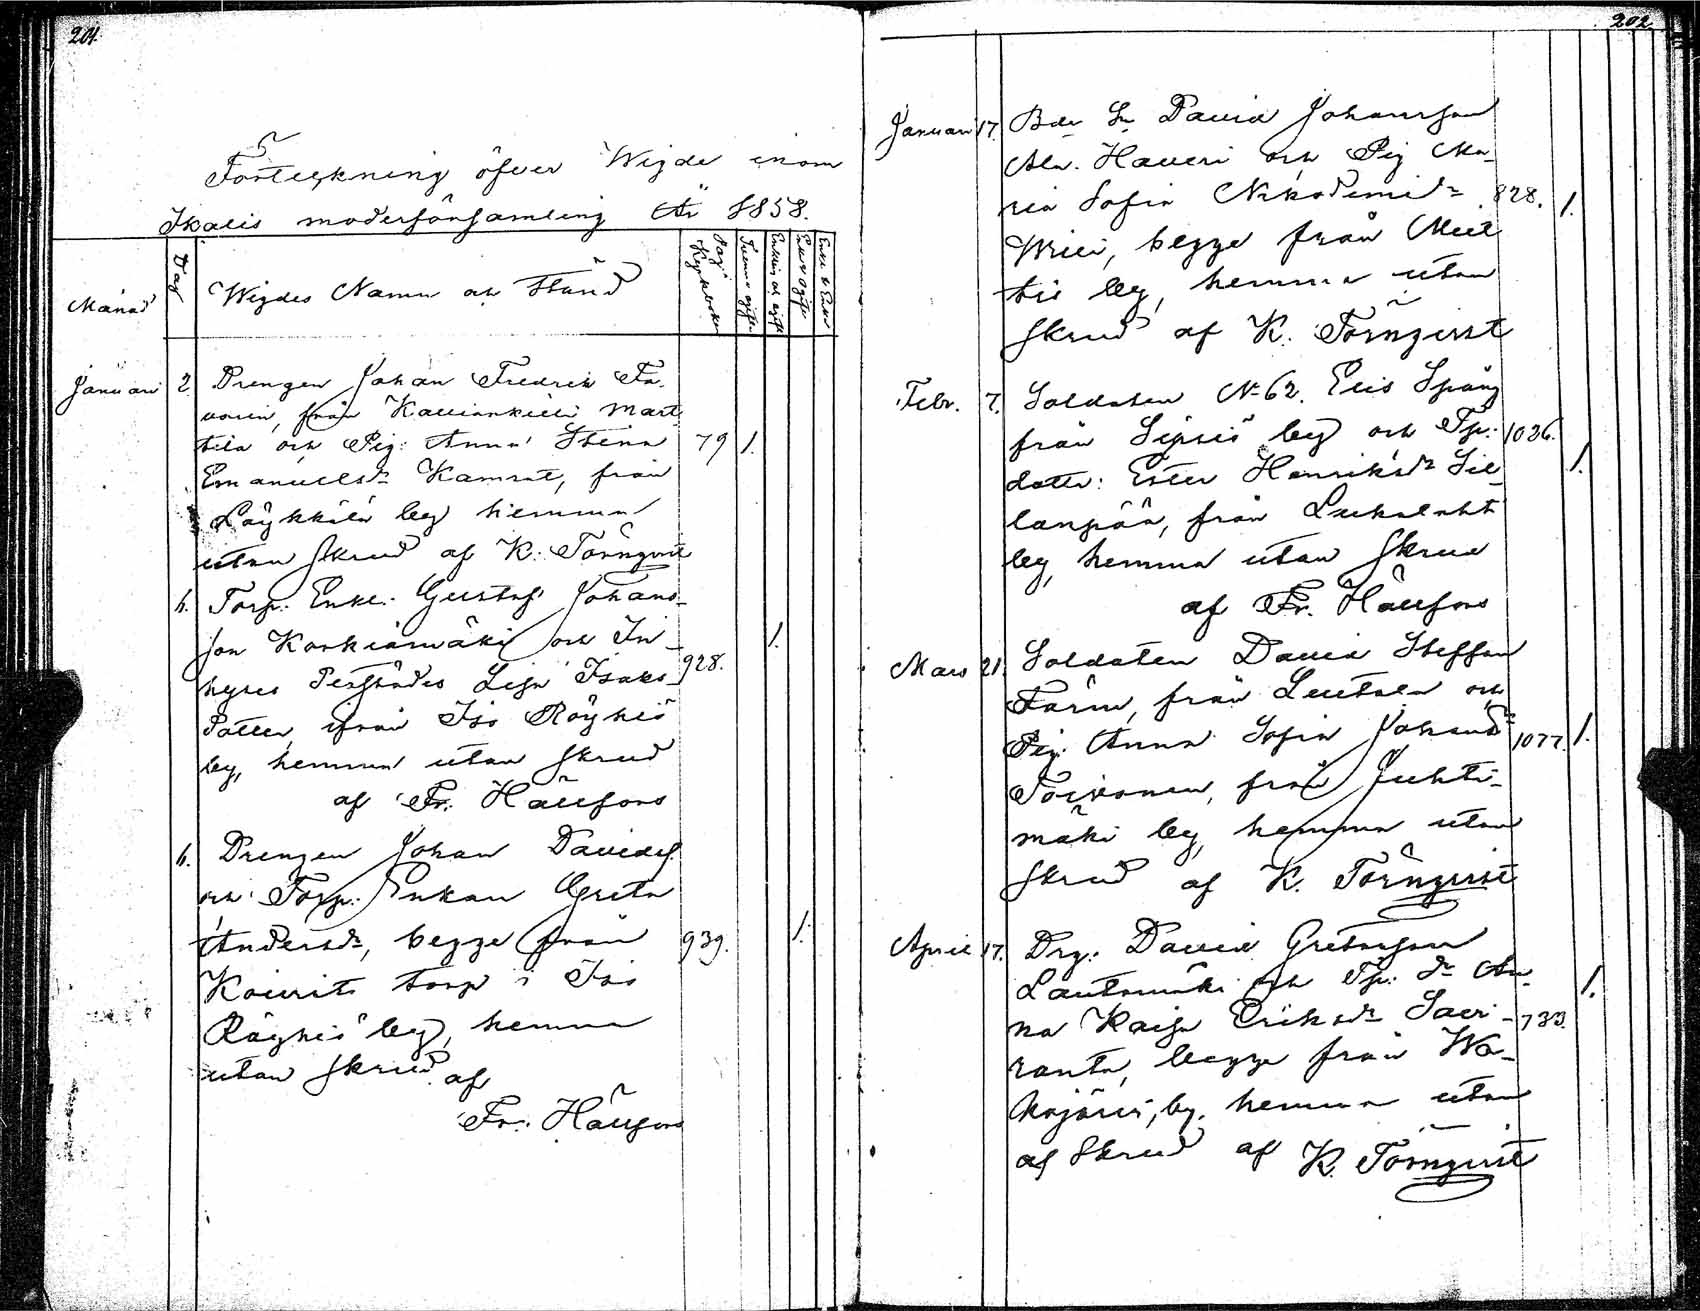 201.
Förteckning öfver Wigde inom
Ikalis moderförsamling År 1858.
Månad
Dag
Wigdes Namn och Stånd
Pag. i Kyrkboken
Tvenne ogifte
Enkling och ogift
Enka o ogift
Enkl. o Enka
Januari 2. Drengen Johan Fredrik Fa-
vorin, från Kallionkieli Mart-
tila och Pig: Anna Stina 79 1.
Emanuelsdr Kamrat, från
Läykkälä by hemma
utan skrud af K. Törnqvist
6. Torp. Enkl. Gustaf Johans-
son Korkiamäki och In- 1.
hyses Perssådes Lisa Isaks- 928.
dotter, ifrån Iso Röyhiö
by, hemma utan skrud
af Fr. Hällfors
6. Drengen Johan Davidss.
och Torp. Enkan Greta
Andersdr, begge från 939. 1.
Koivisto torp i Iso
Röyhiö by, hemma
utan skrud af
Fr. Hällfors
202.
Januari 17. Bde Sn David Johansson
Ala. Haveri och Pig Ma-
ria Sofia Nikodemidr 828. 1.
Wilii, begge från Mel-
tis by, hemma utan
skrud af K. Törnqvist
Febr. 7. Soldaten No 62. Elis Spång
från Sipsiö by och Tp: 1036.
dotter: Ester Henriksdr Sil- 1.
lanpää, från Luhalahti
by, hemma utan skrud
af Fr. Hällfors
Mars 21. Soldaten David Steffan
Färm, från Leutola och
Pig. Anna Sofia Johansdr 1077. 1.
Toivonen, från Juhti-
mäki by, hemma utan
skrud af K. Törnqvist
April 17. Drg: David Gretasson
Lautamäki och Tp: dr An- 1.
na Kaisa Eriksdr Saari- 733.
ranta, begge från Wa-
hojärvi, by. hemma utan
af skrud af K. Törnqvist